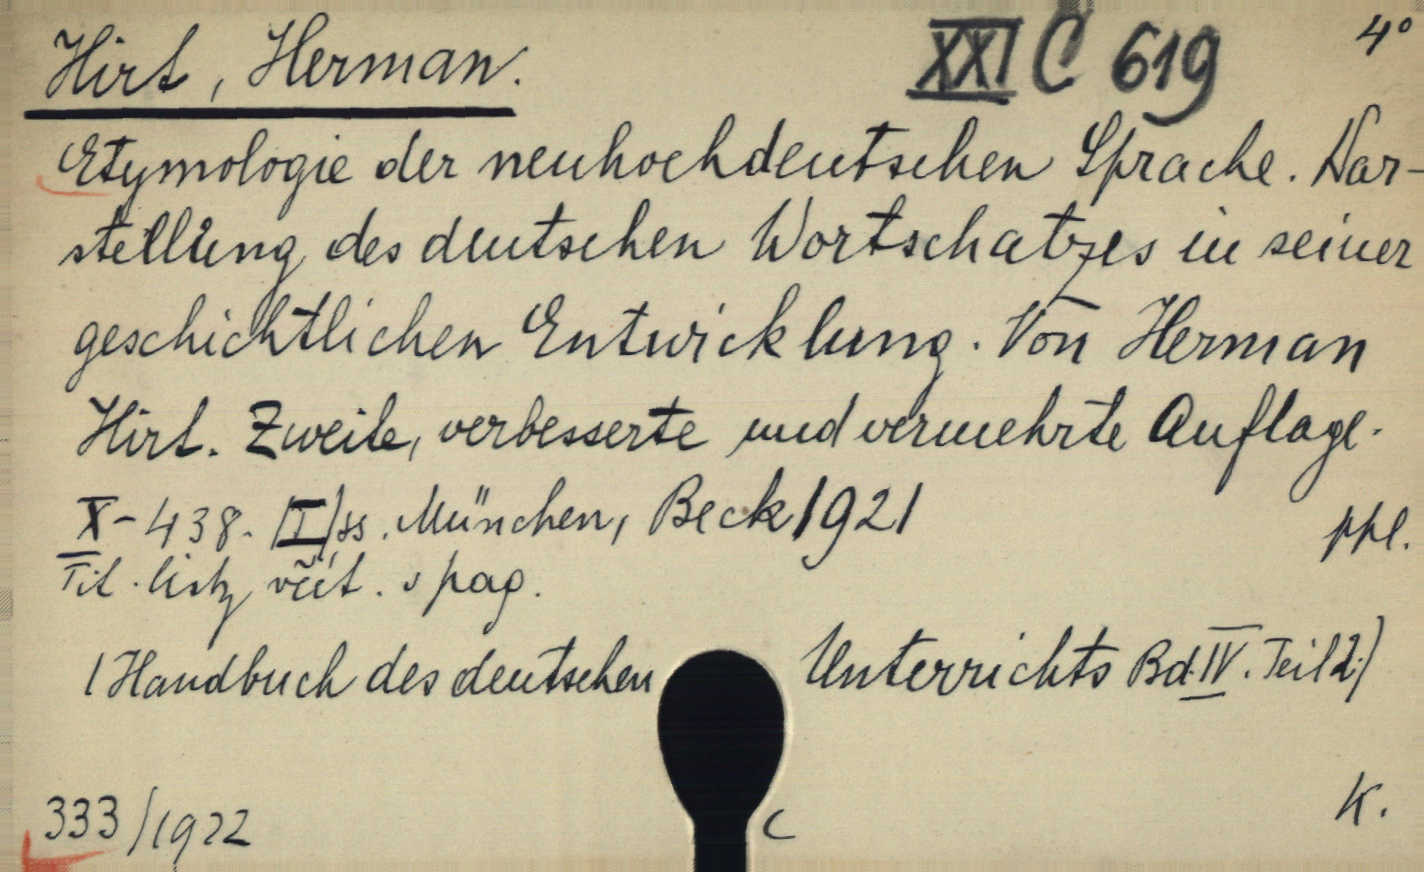 Hirt, Herman. XXI C 619 4°
Etymologie der neuhochdeutschen Sprache. Dar-
stellung des deutschen Wortschatzes in seiner
geschichtlichen Entwicklung. Von Herman
Hirt. Zweite, verbesserte und vermehrte Auflage.
X-438. [I] ss. München, Beck 1921 ppl.
Tit. listy včít. v pag.
(Handbuch des deutschen Unterrichts Bd. IV. Teil 2.)
333/1922 C K.